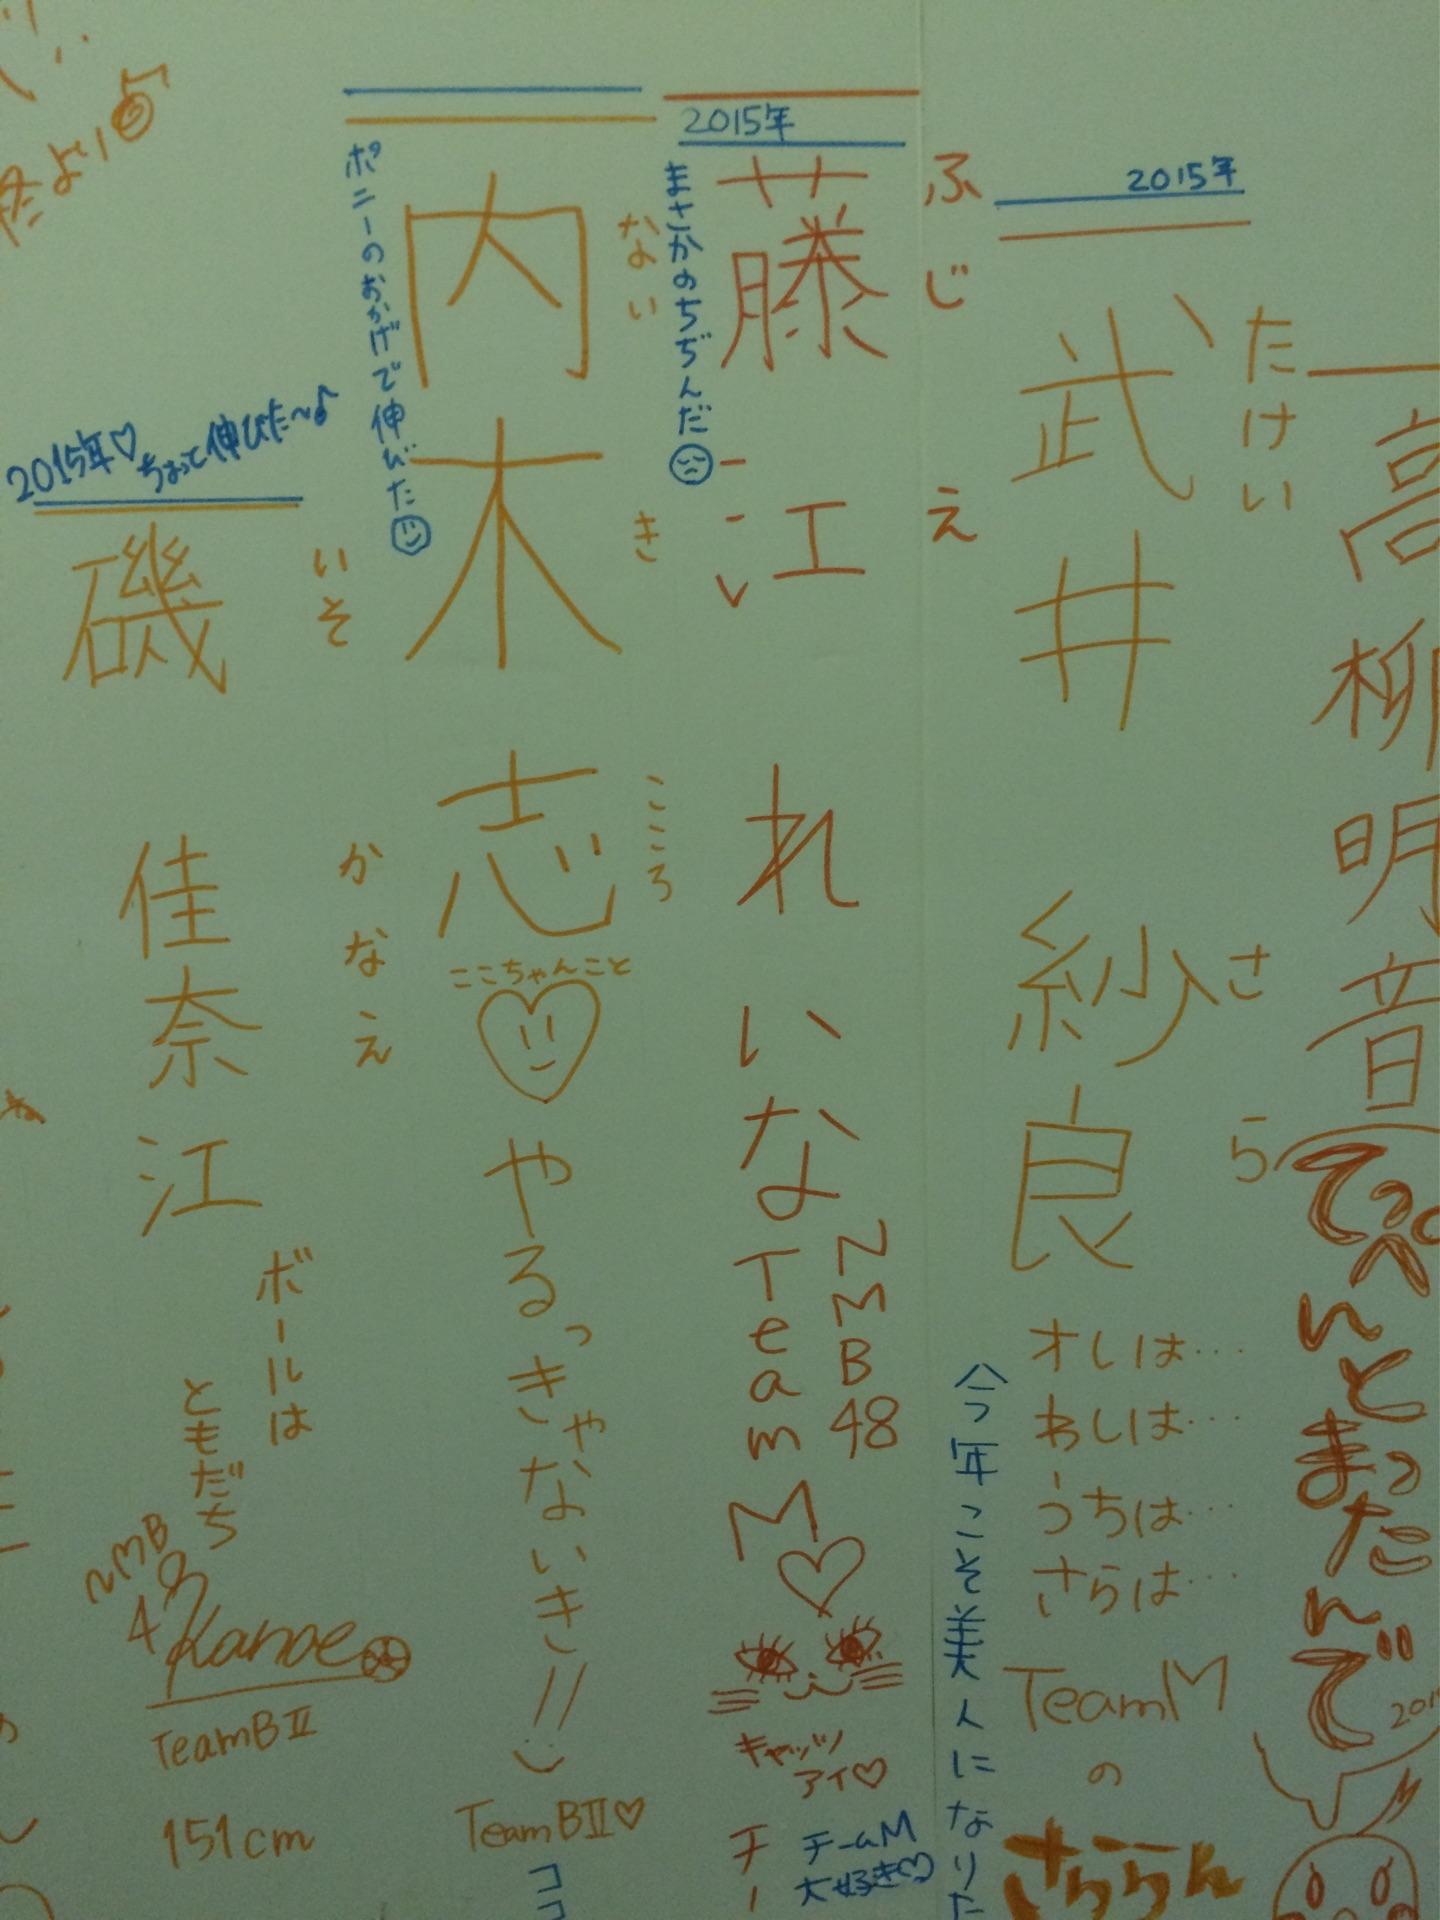 高柳明音
てっぺんとまったんで
2015年
武井紗良
たけい
さら
オレは…
わしは…
うちは…
さらは…
TeamM
の
さららん
今年こそ美人になりた
2015年
藤江れいな
ふじえ
まさかのちぢんだ
NMB48
Team
M♡
キャッツ
アイ♡
チームM
大好き♡
チー
内木志
ないき
こころ
ポニーのおかげで伸びた
ここちゃんこと
やるっきゃないき!!
TeamBⅡ♡
ココ
2015年♡ちょって伸びた〜♪
磯佳奈江
いそ
かなえ
ボールは
ともだち
NMB
48
Kanae
TeamBⅡ
151cm